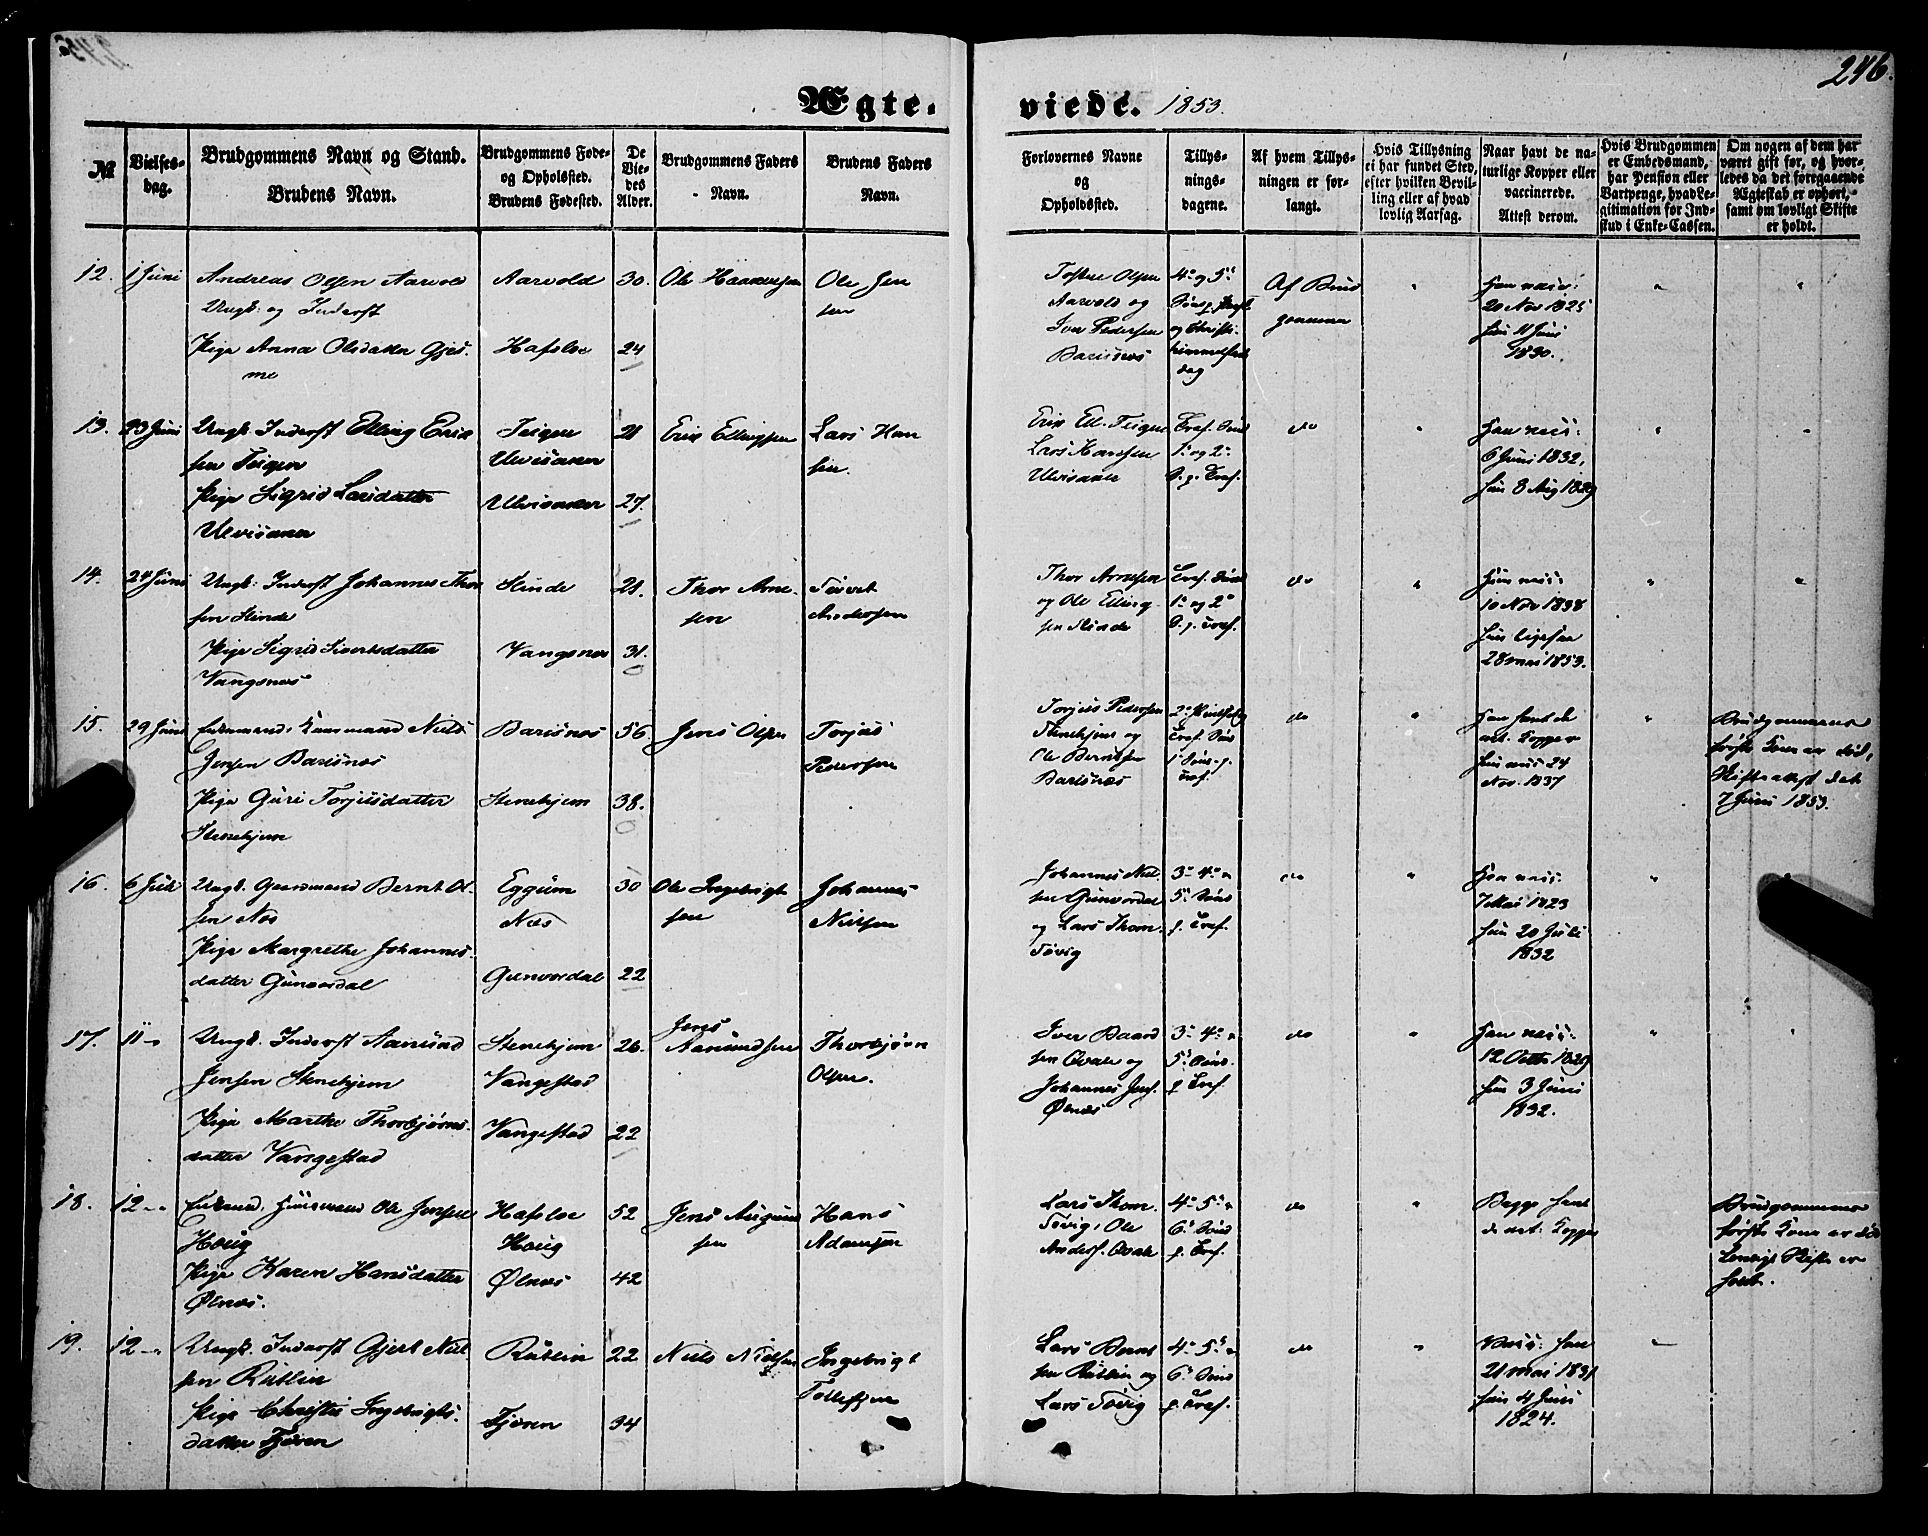 246.
Ægte-
viede. 1853.
№
Vielses-
dag.
Brudgommens Navn og Stand.
Brudens Navn.
Brudgommens Føde-
og Opholsted.
Brudens Fødested.
De
Vie-
des
Alder.
Brudgommens Faders
Navn.
Brudens Faders
Navn.
Forlovernes Navne
og
Opholdssted.
Tillys-
nings-
dagene.
Af hvem Tillys-
ningen er for-
langt.
Hvis Tillysning
ei har fundet Sted,
efter hvilken Bevil-
ling eller af hvad
lovlig Aarsag.
Naar havt de na-
turlige Kopper eller
vaccinerede.
Attest derom.
Hvis Brudgommen
er Embedsmand,
har Pension eller
Vartpenge, hvad Le-
gitimation for Ind-
skud i Enke-Cassen.
Om nogen af dem har
været gift før, og hvor-
ledes da det foregaaende
Ægteskab er ophørt,
samt om lovligt Skifte
er holdt.
12. 1 Juni Andreas Olsen Aarvold
Ungk. og Inderst
Pige Anna Olsdatter Gjes-
me
Aarvold
Hafsloe
30.
24
Ole Haakensen
Ole Jen
sen
Tosten Olsen
Aarvold og
Iver Pedersen
Barisnes
4de og 5te
og Christi
himmelfarts
dag
Af Brud
gommen
Han vacc:
20 Nov 1825
hun 11 Juni
1830.
13. 23 Juni Ungk. Inderst Elling Erik
sen Teigen
Pige Sigrid Larsdatter
Ulvisaker
Teigen
Ulvisaker
Ulvisaker
21
27.
Erik Ellingsen
Lars Han
sen.
Erik Ell. Teigen
Lars Hansen
Ulvisaker
Tref. Sønd
1ste og 2den
S. p. Tref.
do
Han vacc:
6 Juni 1832,
hun 8 Aug 1829
14. 24 Juni Ungk: Inderst Johannes Thor
sen Slinde
Pige Sigrid Sivertsdatter
Vangsnes
Slinde
Vangsnes
21.
31.
Thor Arne-
sen
Sivert
Andersen
Thor Arnesen
og Ole Elling-
sen Slinde
Tref. Sønd
1ste og 2den
S. p. Tref.
do
10 Nov 1838
hun ligesaa
28 mai 1853.
15. 29 Juni Enkemand, Huusmand Niels
Jensen Barisnes
Pige Guri Torjusdatter
Stenehjem
Barisnes
Stenehjem
56.
38.
Jens Olsen
Torjus
Pedersen
Torjus Pedersen
Stenehjem og
Ole Berntsen
Barisnes
2den Pintsedag
Tref. Sønd
1ste Sønd. p.
Tref.
do
Han havt de
nat. Kopper
hun vacc 24
Nov. 1837
Brudgommens
første Kone er død,
Skifteattest dat
7 Juni 1853.
16. 6 Juli Ungk. Gaardmand Bernt Ol-
sen Nes
Pige Margrethe Johannes-
datter Gunvordal
Eggum
Næs
Gunvordal
30
22
Ole Ingebrigt
sen
Johannes
Nielsen
Johannes Niel-
sen Gunvordal
og Lars Thom.
Tøvig
3die 4de
5te Sønd
p. Tref.
do
Han vacc:
7 Mai 1823
hun 20 Juli
1832
17. 11 - Ungk. Inderst Aamund
Jensen Stenehjem
Pige Marthe Thorbjørns-
datter Vangestad
Stenehjem
Vangestad
Vangestad
26.
22
Jens
Aamundsen
Thorbjørn
Olsen.
Iver Baard
sen Qvale og
Johannes Jens.
Ølnæs
3die 4de
5te Sønd.
p Tref.
do
Han vacc:
12 Octb. 1829
hun 3 Juni
1832.
18. 12 - Enkemd. Huusmand Ole Jensen
Houg
Pige Karen Hansdatter
Ølnæs.
Hafsloe
Houg
Ølnæs
52
42
Jens Augund
sen
Hans
Adamsen
Lars Thom.
Tøvig, Ole
Anders. Qvale
4de 5te
6te Sønd
p. Tref.
do
Begge havt
de nat. Kopper
Brudgommens
første Kone er død
Lovligt Skifte er
holdt.
19. 12 - Ungk. Inderst Gjert Niel
sen Rutlin
Pige Christie Ingebrigts-
datter Fjøren
Rutlin
Fjøren
22
34
Niels Nielsen
Ingebrigt
Tollefsen
Lars Bernt
sen Rutlin og
Lars Tøvig
4de 5te
6te Sønd
p Tref.
do
Vacc: han
21 mai 1831
hun 4 Juni
1824.